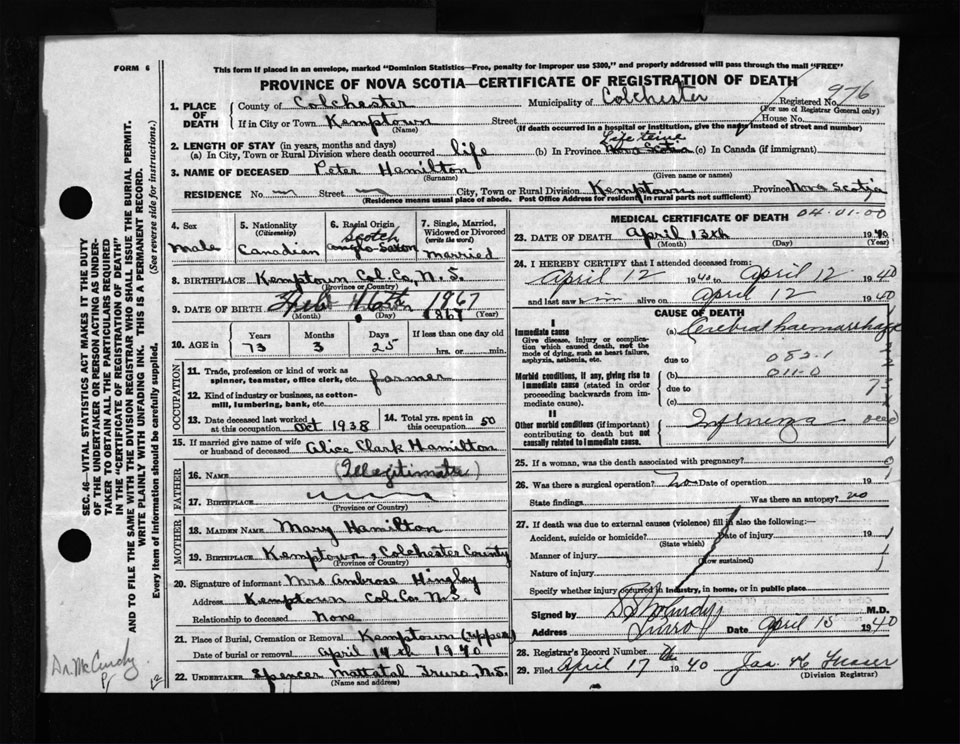 FORM 6
This form if placed in an envelope, marked "Dominion Statistics—Free, penalty for improper use $300," and properly addressed will pass through the mail "FREE"
PROVINCE OF NOVA SCOTIA—CERTIFICATE OF REGISTRATION OF DEATH
976
1. PLACE OF DEATH
County of Colchester Municipality of Colchester Registered No.
(For use of Registrar General only)
If in City or Town Kemptown Street House No.
(Name) (If death occurred in a hospital or institution, give the name instead of street and number)
2. LENGTH OF STAY (in years, months and days)
Life time
(a) In City, Town or Rural Division where death occurred life (b) In Province Nova Scotia (c) In Canada (if immigrant)
3. NAME OF DECEASED Peter Hamilton
(Surname) (Given name or names)
RESIDENCE No. Street City, Town or Rural Division Kemptown Province Nova Scotia
(Residence means usual place of abode. Post Office Address for residents in rural parts not sufficient)
4. Sex
male
5. Nationality
(Citizenship)
Canadian
6. Racial Origin
Scotch
Anglo-Saxon
7. Single, Married, Widowed or Divorced
(write the word)
married
8. BIRTHPLACE Kemptown Col. Co, N.S.
(Province or Country)
9. DATE OF BIRTH 1967
1867
(Month) (Day) (Year)
10. AGE in
Years Months Days If less than one day old
73 3 25 hrs. or min.
OCCUPATION
11. Trade, profession or kind of work as spinner, teamster, office clerk, etc. farmer
12. Kind of industry or business, as cotton-mill, lumbering, bank, etc.
13. Date deceased last worked at this occupation Oct 1938
14. Total yrs. spent in this occupation 50
15. If married give name of wife or husband of deceased Alice Clark Hamilton
FATHER
16. NAME (Illegitimate)
17. BIRTHPLACE
(Province or Country)
MOTHER
18. MAIDEN NAME Mary Hamilton
19. BIRTHPLACE Kemptown, Colchester County
(Province or Country)
20. Signature of informant Mrs Ambrose Hingley
Address Kemptown Col. Co. N.S.
Relationship to deceased None
21. Place of Burial, Cremation or Removal Kemptown (Upper)
Date of burial or removal April 14th 1940
22. UNDERTAKER Spencer N.S.
(Name and address)
MEDICAL CERTIFICATE OF DEATH 04-01-00
23. DATE OF DEATH April 13th 1940
(Month) (Day) (Year)
24. I HEREBY CERTIFY that I attended deceased from:
April 12 1940 to April 12 1940
and last saw him alive on April 12 1940
CAUSE OF DEATH
I
Immediate cause
Give disease, injury or complication which caused death, not the mode of dying, such as heart failure, asphyxia, asthenia, etc.
(a) Cerebral haemorrhage
due to 083-1
Morbid conditions, if any, giving rise to immediate cause (stated in order proceeding backwards from immediate cause).
(b) 011-0
due to
(c)
II
Other morbid conditions (if important) contributing to death but not causally related to immediate cause.
Influenza
25. If a woman, was the death associated with pregnancy?
26. Was there a surgical operation? no Date of operation 19
State findings Was there an autopsy? no
27. If death was due to external causes (violence) fill in also the following:—
Accident, suicide or homicide? Date of injury 19
(State which)
Manner of injury
(How sustained)
Nature of injury
Specify whether injury occurred in industry, in home, or in public place
Signed by M.D.
Address Truro Date April 15 1940
28. Registrar's Record Number
29. Filed April 17 1940 Jas. H. Fraser
(Division Registrar)
SEC. 46—VITAL STATISTICS ACT MAKES IT THE DUTY OF THE UNDERTAKER OR PERSON ACTING AS UNDERTAKER TO OBTAIN ALL THE PARTICULARS REQUIRED IN THE "CERTIFICATE OF REGISTRATION OF DEATH" AND TO FILE THE SAME WITH THE DIVISION REGISTRAR WHO SHALL ISSUE THE BURIAL PERMIT.
WRITE PLAINLY WITH UNFADING INK. THIS IS A PERMANENT RECORD.
Every item of information should be carefully supplied. (See reverse side for instructions.)
Dr. McCurdy